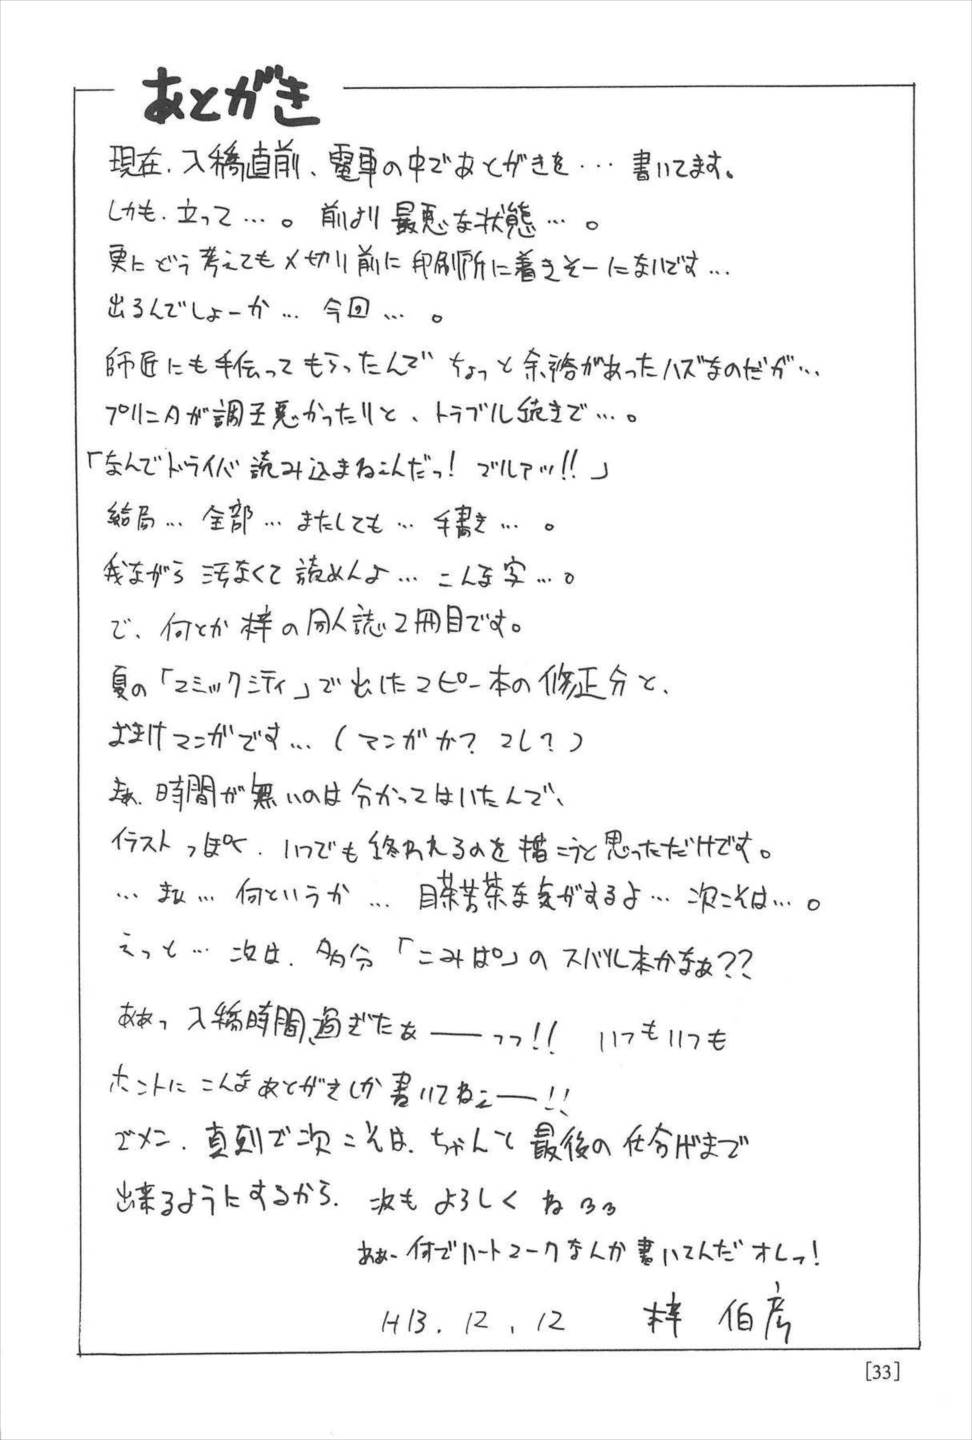 あとがき
現在、入稿直前、電車の中であとがきを…書いてます。
しかも、立って…。前より最悪な状態…。
更にどう考えても〆切り前に印刷所に着きそーにないです…
出るんでしょーか…今回…。
師匠にも手伝ってもらったんでちょっと余裕があったハズなのだが…
プリンタが調子悪かったりと、トラブル続きで…。
「なんでドライバ読み込まねェんだっ!ゴルァッ!!」
結局…全部…またしても…手書き…。
我ながら汚なくて読めんよ…こんな字…。
で、何とか梓の同人誌2冊目です。
夏の「コミックシティ」で出したコピー本の修正分と、
おまけマンガです…(マンガか?コレ?)
まぁ、時間が無いのは分かってはいたんで、
イラストっぽく、いつでも終われるのを描こうと思っただけです。
…まぁ…何というか…目茶苦茶な気がするよ…次こそは…。
えっと…次は、多分「こみぱ」のスバル本かなぁ??
ああっ入稿時間過ぎたぁーーっっ!!いつもいつも
ホントにこんなあとがきしか書いてねェー!!
ゴメン、真剣で次こそは、ちゃんと最後の仕分けまで
出来るようにするから、次もよろしくね
ああー何でハートマークなんか書いてんだオレっ!
H13.12.12 梓 伯彦
[33]